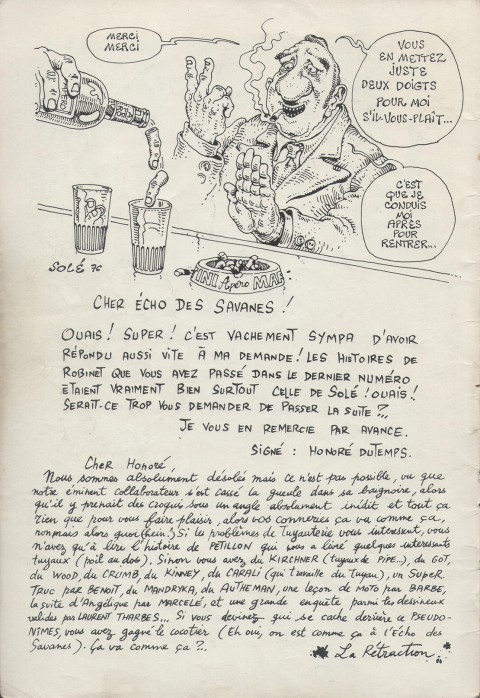 MERCI
MERCI
VOUS
EN METTEZ
JUSTE
DEUX DOIGTS
POUR MOI
S'IL-VOUS-PLAÎT...
C'EST
QUE JE
CONDUIS
MOI
APRÈS
POUR
RENTRER...
SOLÉ 76
INI Apéro MAR
CHER ÉCHO DES SAVANES !
OUAIS ! SUPER ! C'EST VACHEMENT SYMPA D'AVOIR
RÉPONDU AUSSI VITE À MA DEMANDE ! LES HISTOIRES DE
ROBINET QUE VOUS AVEZ PASSÉ DANS LE DERNIER NUMÉRO
ÉTAIENT VRAIMENT BIEN SURTOUT CELLE DE SOLÉ ! OUAIS !
SERAIT-CE TROP VOUS DEMANDER DE PASSER LA SUITE ?..
JE VOUS EN REMERCIE PAR AVANCE.
SIGNÉ : HONORÉ DUTEMPS.
CHER HONORÉ,
Nous sommes absolument désolés mais ce n'est pas possible, vu que
notre éminent collaborateur s'est cassé la gueule dans sa baignoire, alors
qu'il y prenait des croquis sous un angle absolument inédit et tout ça
rien que pour vous faire plaisir, alors vos conneries ça va comme ça,
nonmais alors quoi (hein.) Si les problèmes de Tuyauterie vous intéressent, vous
n'avez qu'à lire l'histoire de PETILLON qui nous a livré quelques intéressants
tuyaux (poil au dos). Sinon vous avez du KIRCHNER (tuyaux de PIPE...), du GOT,
du WOOD, du CRUMB, du KINNEY, du CARALI (qui travaille du Tuyau), un SUPER
TRUC par BENOIT, du MANDRYKA, du AUTHEMAN, une leçon de MOTO par BARBE,
la suite d'Angélique par MARCELÉ, et une grande enquête parmi les dessineux
valides par LAURENT THARBES... Si vous devinez qui se cache derrière ce PSEUDO-
NIMES, vous avez gagné le cocotier (Eh oui, on est comme ça à l'Echo des
Savanes). Ça va comme ça ?..
La Rétraction